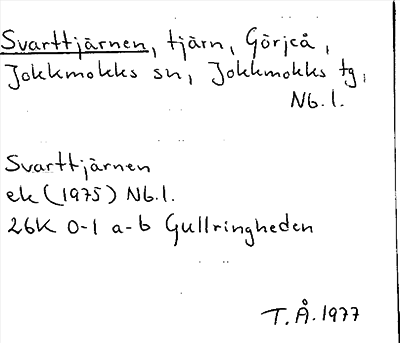 Svarttjärnen, tjärn, Görjeå,
Jokkmokks sn, Jokkmokks tg,
Nb.l.
Svarttjärnen
ek (1975) Nb.l.
26K 0-1 a-b Gullringheden
T.Å. 1977